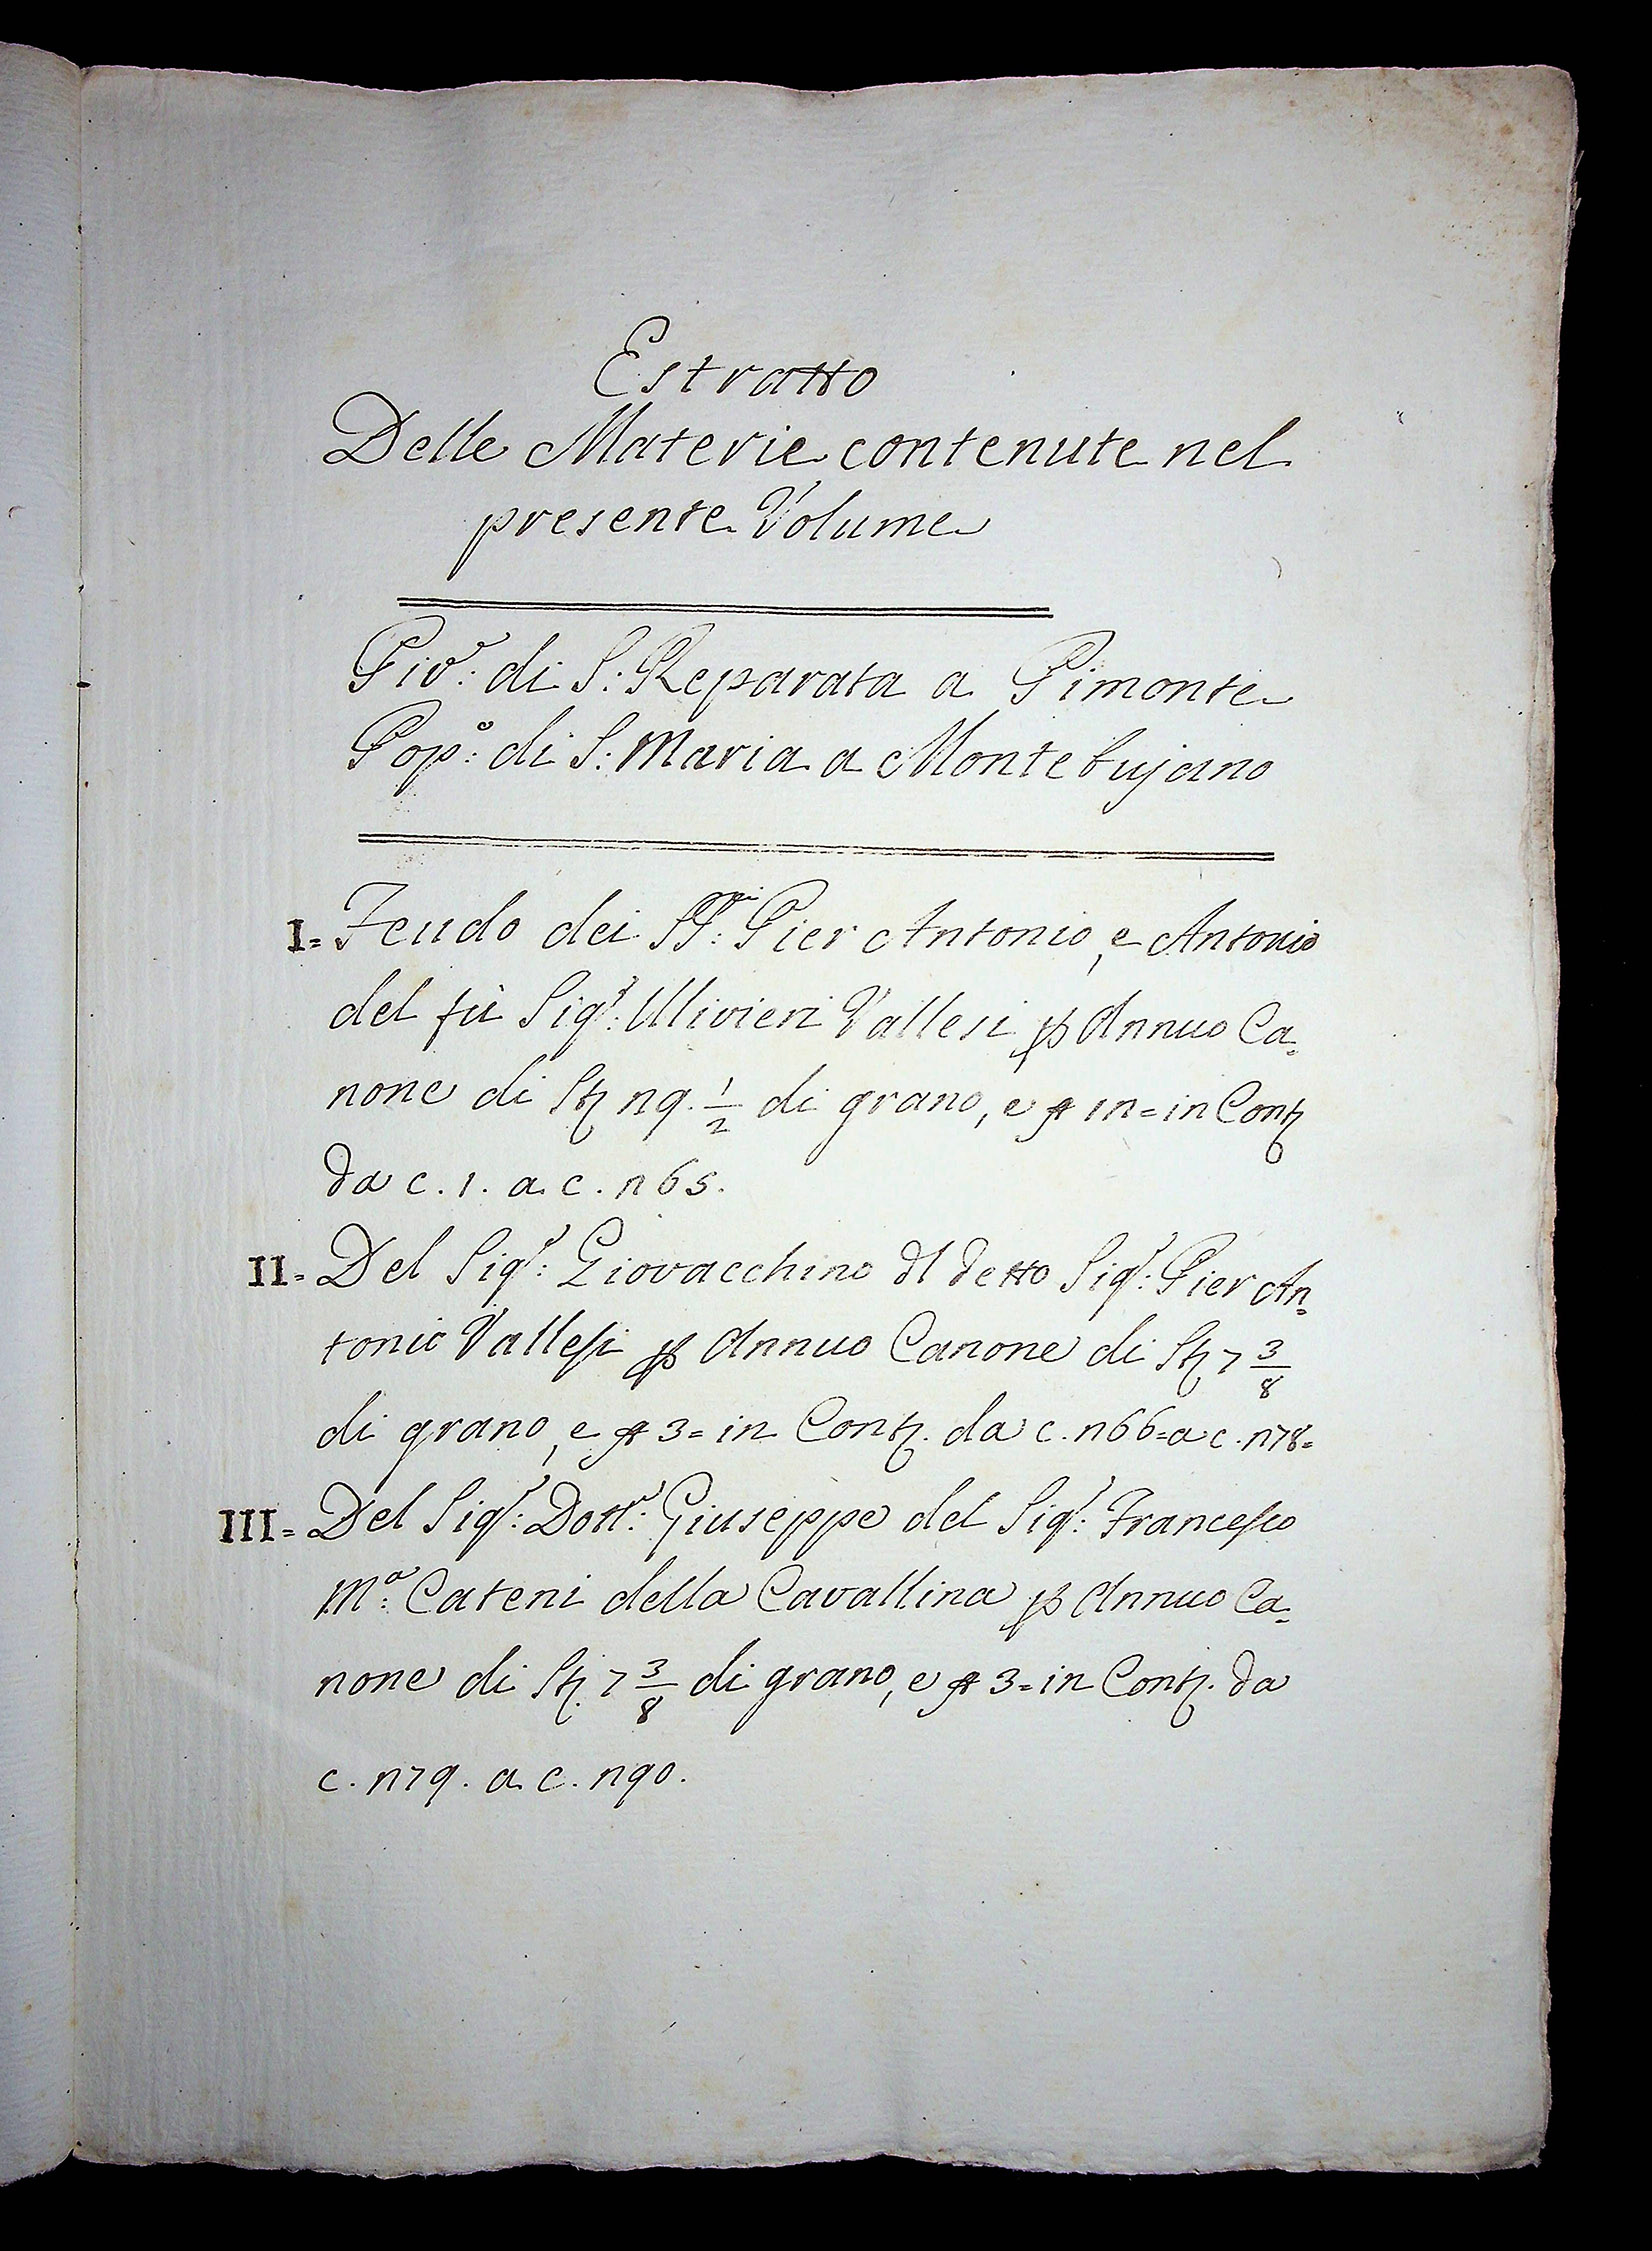 Estratto
Delle Materie contenute nel
presente Volume
Piv.e: di S: Reparata a Pimonte
Pop.o: di S: Maria a Montebujano
I= Feudo dei SS.ri: Pier Antonio, e Antonio
del fù Sig.r: Ulivieri Vallesi p Annuo Ca=
none di St 29. 1/2 di grano, e ₶ 12= in Cont
da c. 1. a c. 265.
II= Del Sig.r: Giovacchino dl detto Sig.r: Pier An=
tonio Vallesi p Annuo Canone di St 7 3/8
di grano, e ₶ 3= in Cont. da c. 266= a c. 278=
III= Del Sig.r: Dott.r: Giuseppe del Sig.r: Francesco
M.a: Cateni della Cavallina p Annuo Ca=
none di St. 7 3/8 di grano, e ₶ 3= in Cont. da
c. 279. a c. 290.